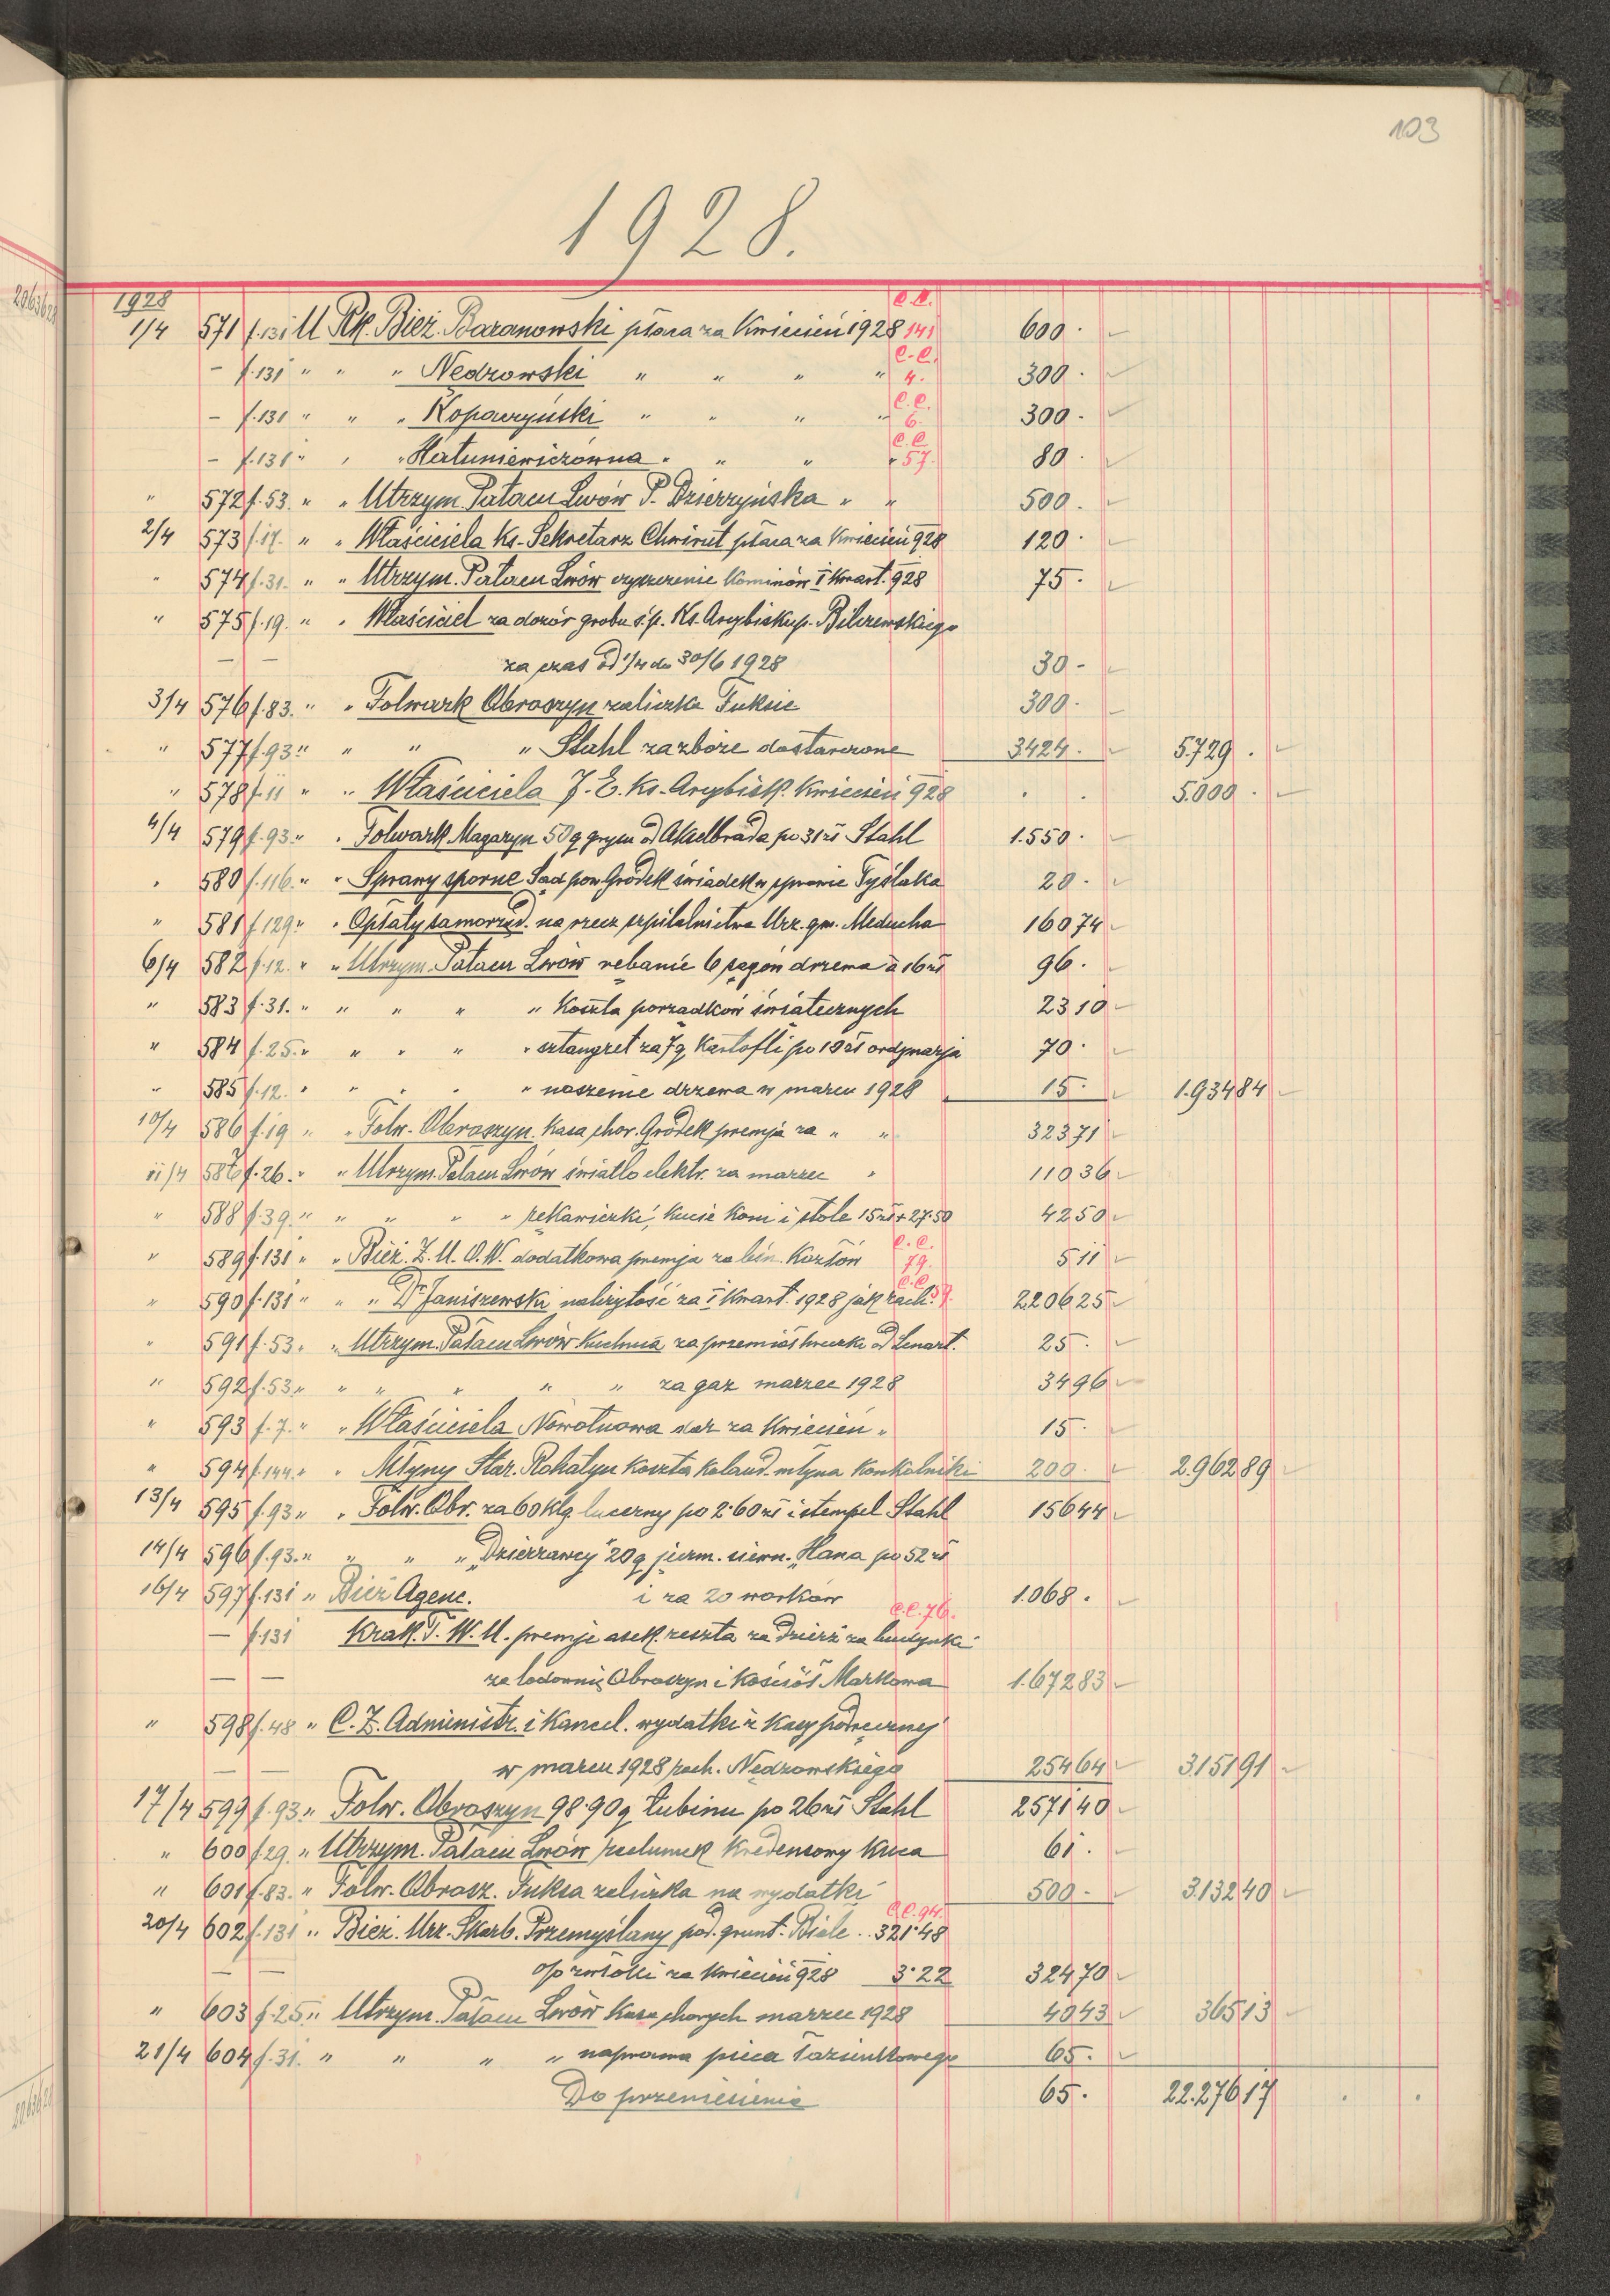 103
1928.
1928
1/4 571 f.131 U Rk. Bież. Baranowski płaca za Kwiecień 1928 C.C. 141 600.
– f.131 " " " Nędzowski " " " " C.C. 4. 300.
– f.131 " " " Kopaczyński " " " " C.C. 6. 300.
– f.131 " " " Hatuniewiczówna " " " " C.C. 57. 80.
" 572 f.53. " " Utrzym. Pałacu Lwów P. Dzierżyńska " " 500.
2/4 573 f.17. " " Właściciela Ks. Sekretarz Chwirut płaca za Kwiecień 928 120.
" 574 f.31. " " Utrzym. Pałacu Lwów czyszczenie Kominów I Kwart. 928 75.
" 575 f.19. " " Właściciel za dozór grobu ś.p. Ks. Arcybiskup. Bilczewskiego
— — za czas od 1/4 do 30/6 1928 30.
3/4 576 f.83. " " Folwark Obroszyn zaliczka Fuksie 300.
" 577 f.93 " " " " Stahl za zboże dostarczone 3424. 5.729.
" 578 f.11 " " Właściciela J.E. Ks. Arcybisk. Kwiecień 928 . . 5.000.
4/4 579 f.93 " " Folwark Magazyn 50 q od Akselbrada po 31 zł Stahl 1.550.
" 580 f.116. " " Sprawy sporne Sąd pow. Gródek świadek w sprawie Tyślaka 20.
" 581 f.129 " " Opłaty samorząd. na rzecz szpitalnictwa Urz. gm. Meducha 160 74
6/4 582 f.12. " " Utrzym. Pałacu Lwów rębanie 6 sągów drzewa à 16 zł 96.
" 583 f.31. " " " " " Koszta porządków świątecznych 23 10
" 584 f.25. " " " " " sztangret za 7 q Kartofli po 10 zł ordynarja 70.
" 585 f.12. " " " " " noszenie drzewa w marcu 1928 15. 1.934 84
10/4 586 f.19 " " Folw. Obroszyn. Kasa chor. Gródek premja za " " 323 71
11/4 587 f.26. " " Utrzym. Pałacu Lwów światło elektr. za marzec " 110 36
" 588 f.39. " " " " " rękawiczki, kucie koni i stole 15 zł + 27.50 42 50
" 589 f.131 " " Bież. Z.U.O.W. dodatkowa premja za Kozłów C.C. 79. 5 11
" 590 f.131 " " " Dr Janiszewski należytość za I Kwart. 1928 jak rach. C.C. 2.206 25
" 591 f.53. " " Utrzym. Pałacu Lwów Kuchnia za przemiał hreczki od Lenart. 25.
" 592 f.53 " " " " " " za gaz marzec 1928 34 96
" 593 f.7. " " Właściciela Nowotnowa dar za Kwiecień " 15.
" 594 f.144. " " Młyny Star. Rohatyn Koszta Kolaud. młyna Konkolniki 200. 2.962 89
13/4 595 f.93 " " Folw. Obr. za 60 Klg. lucerny po 2.60 zł i stempel Stahl 156 44
14/4 596 f.93. " " " " "Dzierżawcy" 20 q ziem. "Hana po 52 zł
16/4 597 f.131 " Bież Agenc. i za 20 worków 1.068.
— f.131 Krak. T.W.U. premje asek. reszta za Dzierż za budynki C.C. 76.
— — za lodownię Obroszyn i Kościół Markowa 1.672 83
" 598 f.48 " C.Z. Administr. i Kancel. wydatki z Kasy podręcznej
— — w marcu 1928 rach. Nędzowskiego 254 64 3.151 91
17/4 599 f.93 " Folw. Obroszyn 98.90 q Łubinu po 26 zł Stahl 2571 40
" 600 f.29. " Utrzym. Pałacu Lwów rachunek kredensowy Kuca 61.
" 601 f.83. " Folw. Obrosz. Fuksa zaliczka na wydatki 500. 3.132 40
20/4 602 f.131 " Bież. Urz. Skarb. Przemyślany pod. grunt. Białe .. 321.48 C.C. 94.
— — % zwłoki za Kwiecień 928 3.22 324 70
" 603 f.25 " Utrzym. Pałacu Lwów Kasa chorych marzec 1928 40 43 365 13
21/4 604 f.31. " " " " naprawa pieca łazienkowego 65.
Do przeniesienia 65. 22.276 17 . .